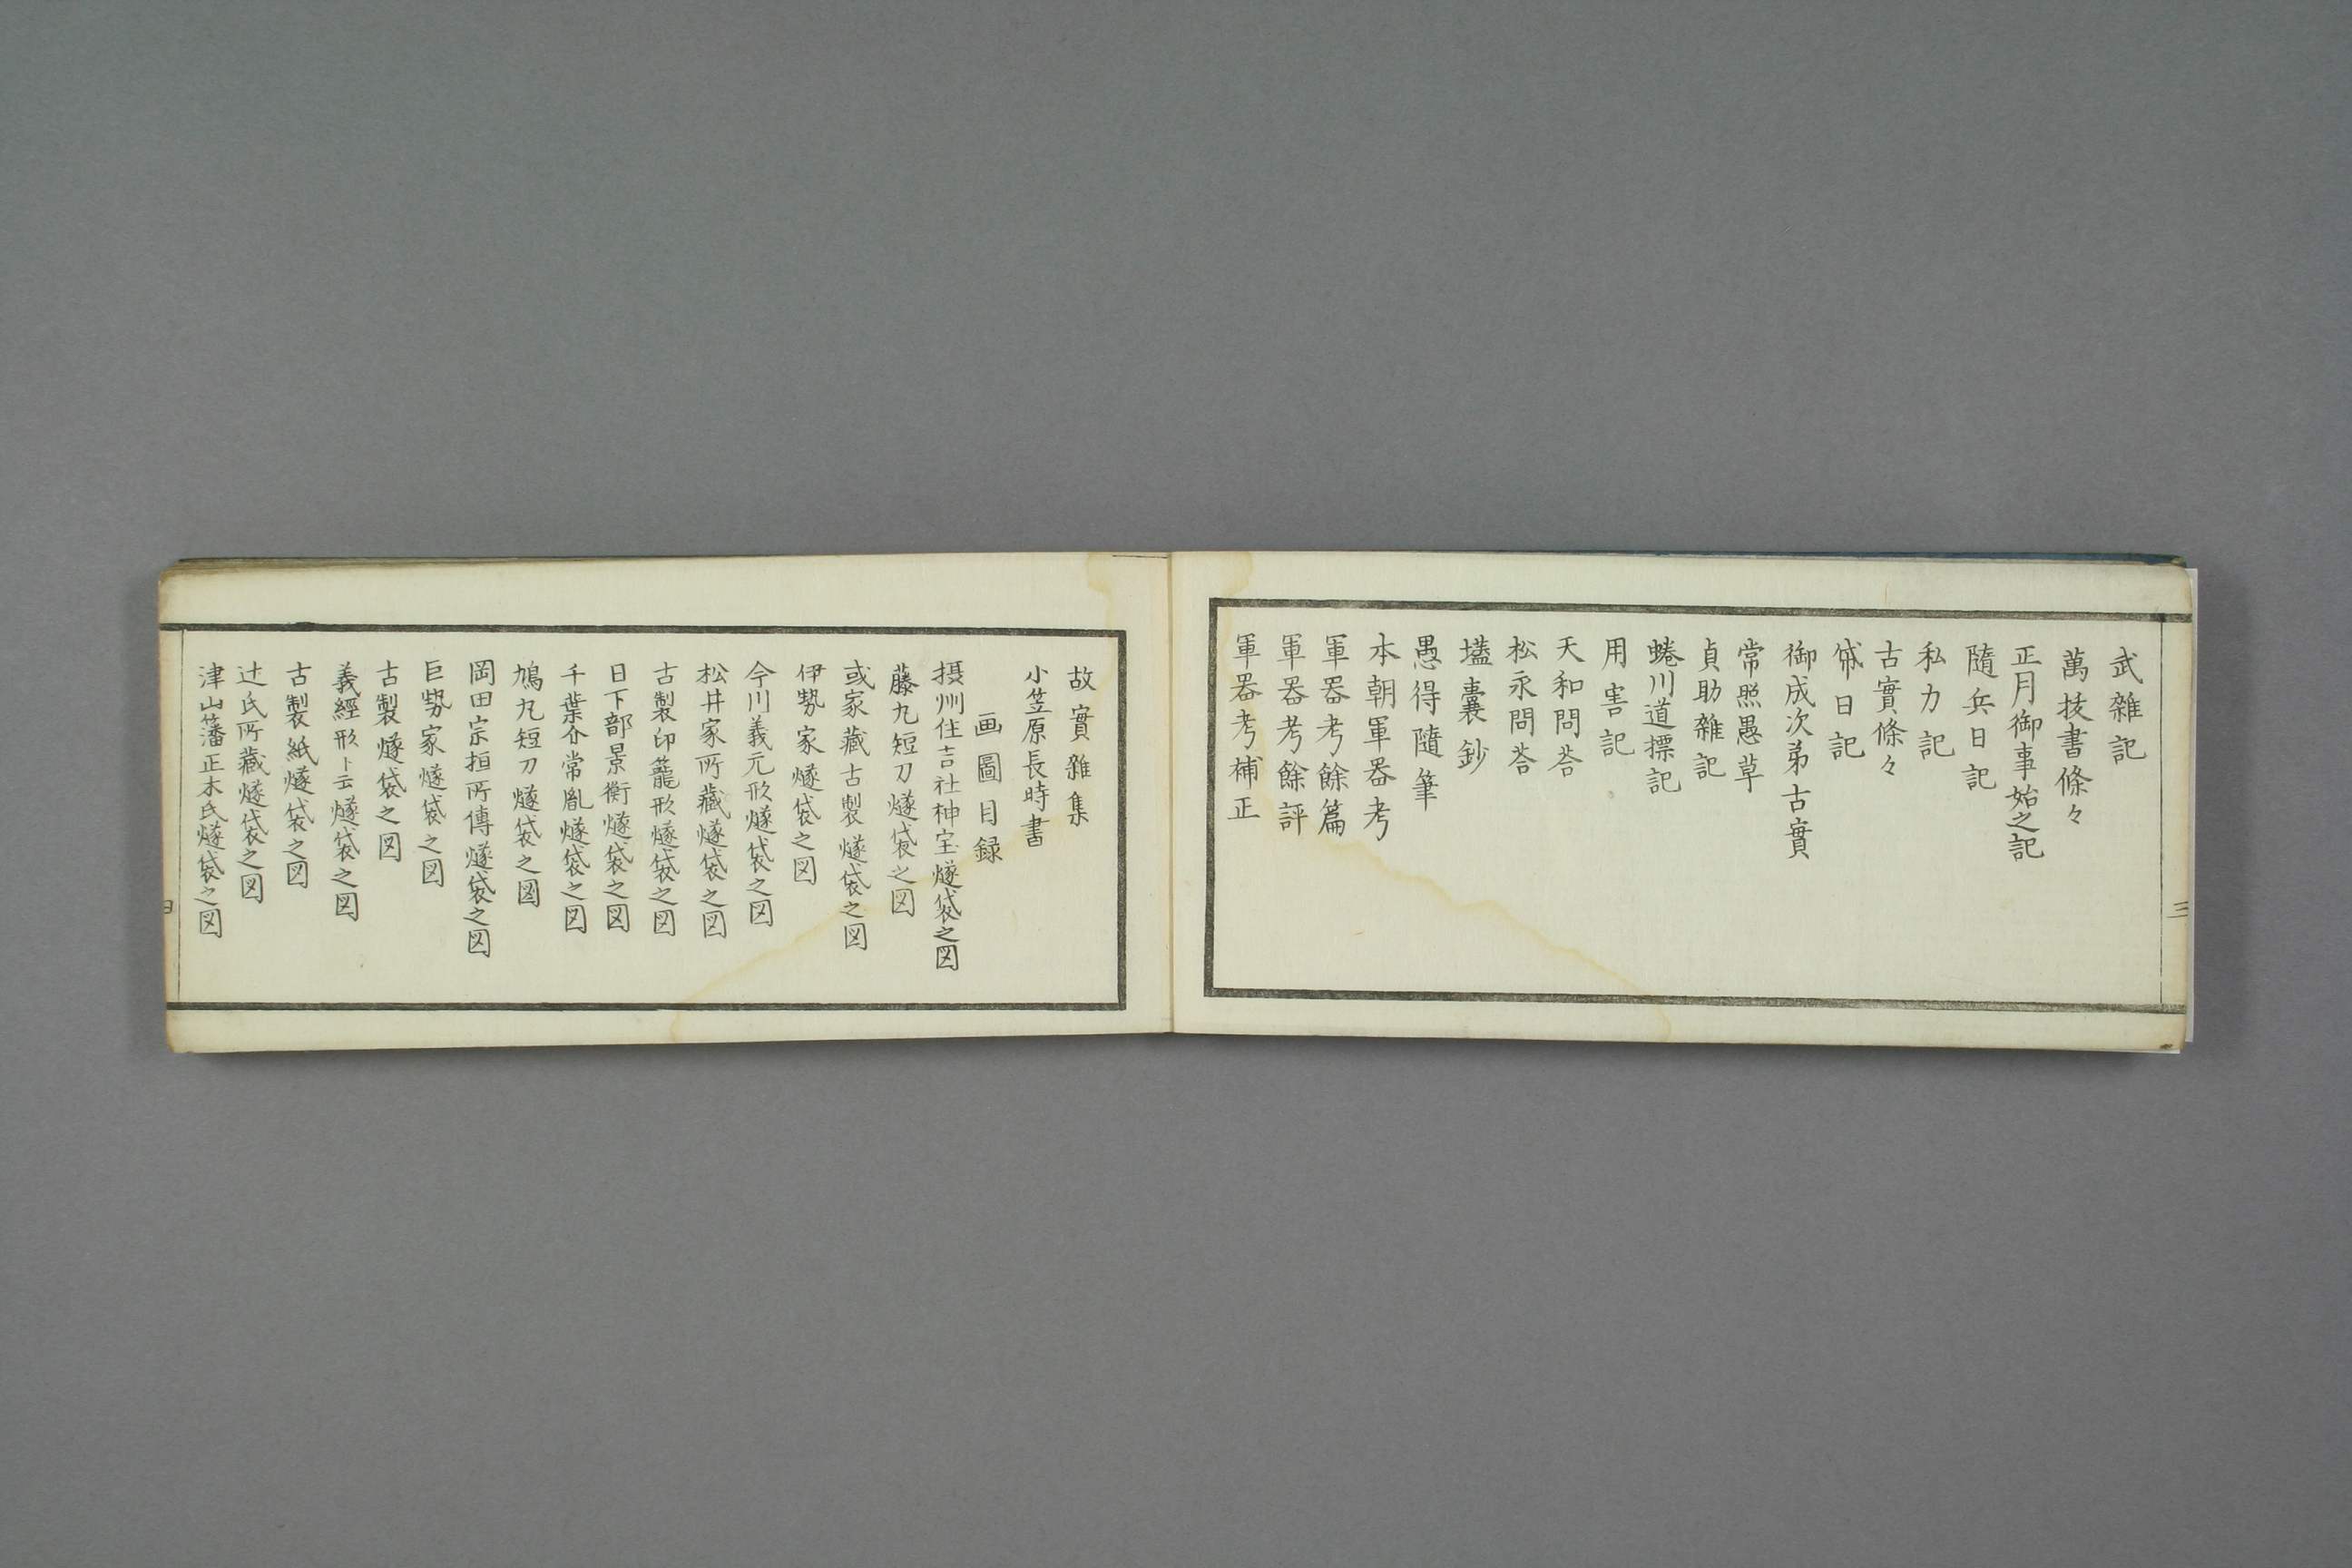 武雜記
萬技書條々
正月御事始之記
隨兵日記
私力記
古實條々
日記
御成次弟古實
常照愚草
貞助雜記
蜷川道標記
用害記
天和問荅
松永問荅
壒囊鈔
愚得隨筆
本朝軍器考
軍器考餘篇
軍器考餘評
軍器考補正
三
故實雜集
小笠原長時書
画圖目録
摂州住吉社神宝燧袋之図
藤九短刀燧袋之図
或家藏古製燧袋之図
伊勢家燧袋之図
今川義元形燧袋之図
松井家所藏燧袋之図
古製印籠形燧袋之図
日下部景衡燧袋之図
千葉介常胤燧袋之図
鳩丸短刀燧袋之図
岡田宗桓所傳燧袋之図
巨勢家燧袋之図
古製燧袋之図
義經形ト云燧袋之図
古製紙燧袋之図
辻氏所藏燧袋之図
津山藩正木氏燧袋之図